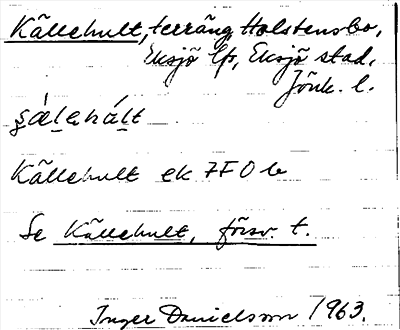 Källehult, terräng Holstensbo,
Eksjö lfs, Eksjö stad,
Jönk. l.
ʂǽl̠ahál̠t
Källehult ek 7F0b
Se Källehult, försv. t.
Inger Danielsson 1963.